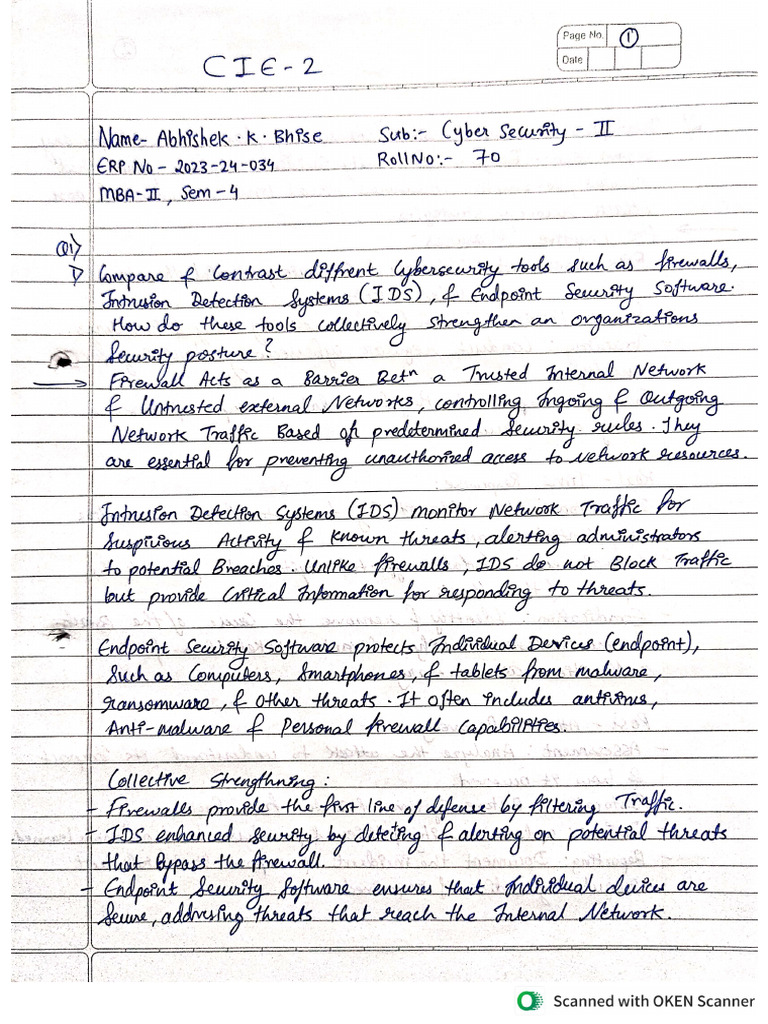 Page No. 1
Date
CIE-2
Name- Abhishek.K.Bhise Sub:- Cyber Security - II
ERP No - 2023-24-034 Roll No:- 70
MBA-II, Sem-4
Q1)
1) Compare & Contrast diffrent Cybersecurity tools such as firewalls,
Intrusion Detection Systems (IDS), & Endpoint Security Software.
How do these tools collectively strengthen an organizations
Security posture?
→ Firewall Acts as a Barrier Betn a Trusted Internal Network
& Untrusted external Networks, controlling Ingoing & Outgoing
Network Traffic Based of predetermined Security rules. They
are essential for preventing unauthorized access to network resources.
Intrusion Detection Systems (IDS) monitor Network Traffic for
Suspivious Activity & Known threats, alerting administrators
to potential Breaches. Unlike firewalls, IDS do not Block Traffic
but provide Critical Information for responding to threats.
Endpoint Security Software protects Individual Devices (endpoint),
Such as Computers, Smartphones, & tablets from malware,
ransomware, & other threats. It often includes antivirus,
Anti-malware & Personal firewall Capabilities.
Collective Strengthning:
- Firewalls provide the first line of defense by filtering Traffic.
- IDS enhanced security by deteting & alerting on potential threats
that Bypass the firewall.
- Endpoint Security Software ensures that Individual devices are
Secure, addressing threats that reach the Internal Network.
Scanned with OKEN Scanner